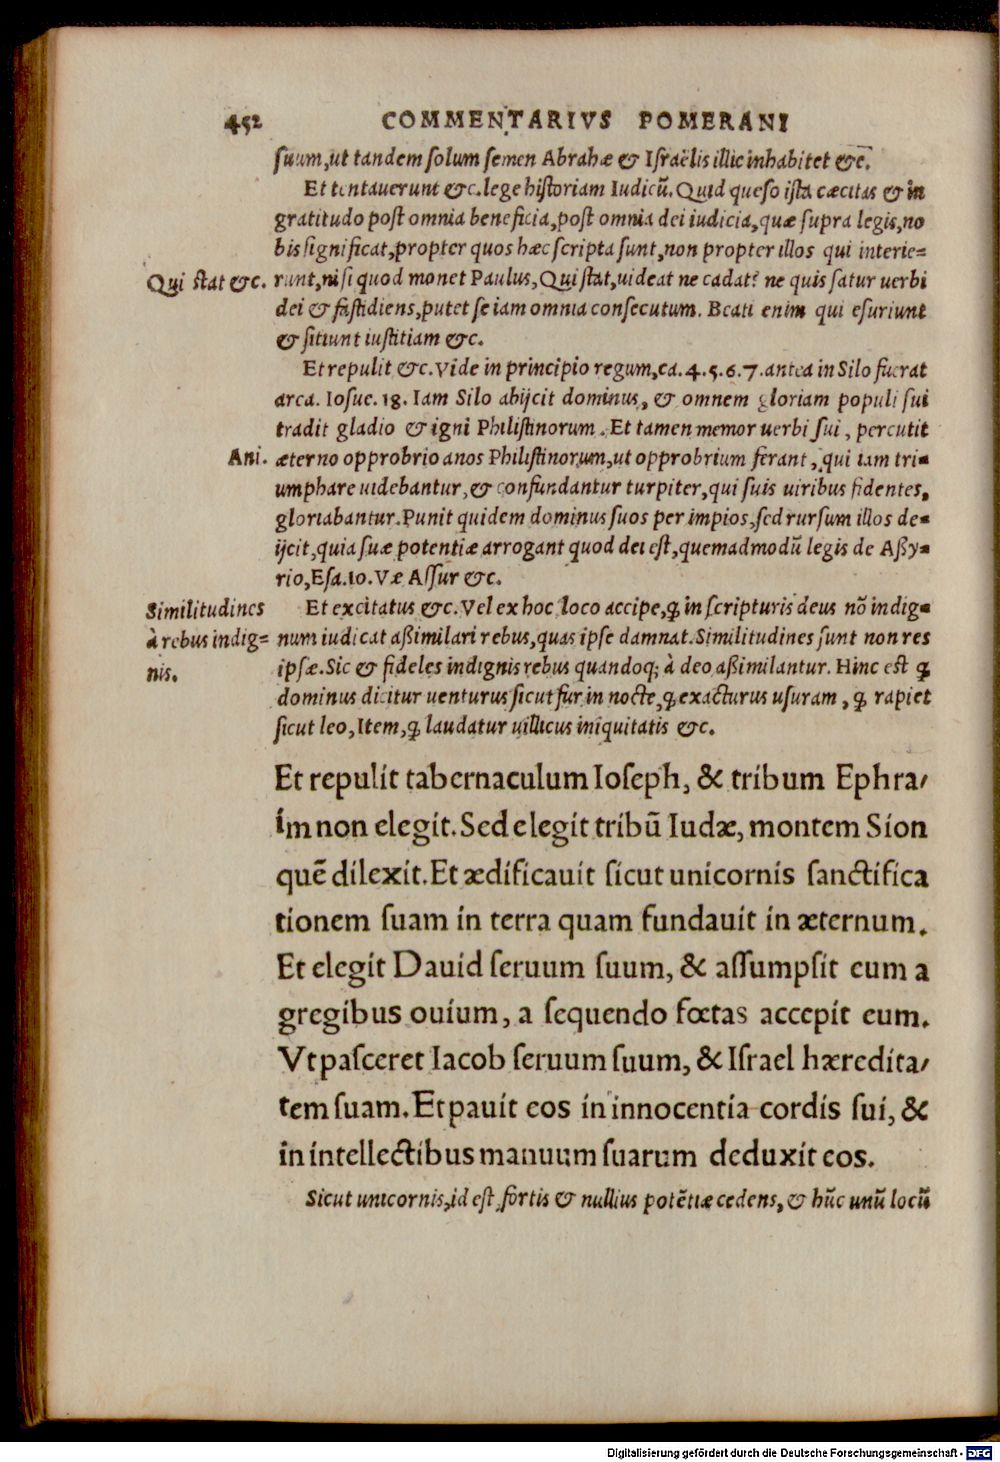 452 COMMENTARIVS POMERANI
ſuum, ut tandem ſolum ſemen Abrahæ & Iſraëlis illic inhabitet &c̄.
Et tentauerunt &c. lege hiſtoriam Iudicū. Quid queſo iſta cæcitas & in
gratitudo poſt omnia beneficia, poſt omnia dei iudicia, quæ ſupra legis, no
bis ſignificat, propter quos hæc ſcripta ſunt, non propter illos qui interie=
Qui ſtat &c.
runt, niſi quod monet Paulus, Qui ſtat, uideat ne cadat? ne quis ſatur uerbi
dei & faſtidiens, putet ſe iam omnia conſecutum. Beati enim qui eſuriunt
& ſitiunt iuſtitiam &c.
Et repulit &c. Vide in principio regum, ca. 4. 5. 6. 7. antea in Silo fuerat
arca. Ioſue. 18. Iam Silo abijcit dominus, & omnem gloriam populi ſui
tradit gladio & igni Philiſtinorum. Et tamen memor uerbi ſui, percutit
Ani.
æterno opprobrio anos Philiſtinorum, ut opprobrium ferant, qui iam tri=
umphare uidebantur, & confundantur turpiter, qui ſuis uiribus fidentes,
gloriabantur. Punit quidem dominus ſuos per impios, ſed rurſum illos de=
ijcit, quia ſuæ potentiæ arrogant quod dei eſt, quemadmodū legis de Aßy=
rio, Eſa. 10. Væ Aſſur &c.
Similitudines
à rebus indig=
nis.
Et excitatus &c. Vel ex hoc loco accipe, ꝙ in ſcripturis deus nō indig=
num iudicat aßimilari rebus, quas ipſe damnat. Similitudines ſunt non res
ipſæ. Sic & fideles indignis rebus quandoq; à deo aßimilantur. Hinc eſt ꝙ
dominus dicitur uenturus ſicut fur in nocte, ꝙ exacturus uſuram, ꝙ rapiet
ſicut leo, Item, ꝙ laudatur uillicus iniquitatis &c.
Et repulit tabernaculum Ioſeph, & tribum Ephra/
im non elegit. Sed elegit tribū Iudæ, montem Sion
quē dilexit. Et ædificauit ſicut unicornis ſanctifica
tionem ſuam in terra quam fundauit in æternum.
Et elegit Dauid ſeruum ſuum, & aſſumpſit eum a
gregibus ouium, a ſequendo fœtas accepit eum.
Vt paſceret Iacob ſeruum ſuum, & Iſrael hæredita/
tem ſuam. Et pauit eos in innocentia cordis ſui, &
in intellectibus manuum ſuarum deduxit eos.
Sicut unicornis, id eſt, fortis & nullius potētiæ cedens, & hūc unū locū
Digitalisierung gefördert durch die Deutsche Forschungsgemeinschaft - DFG